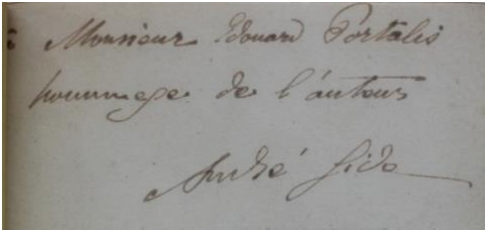 à Monsieur Edouard Portalis
hommage de l'auteur
André Gide